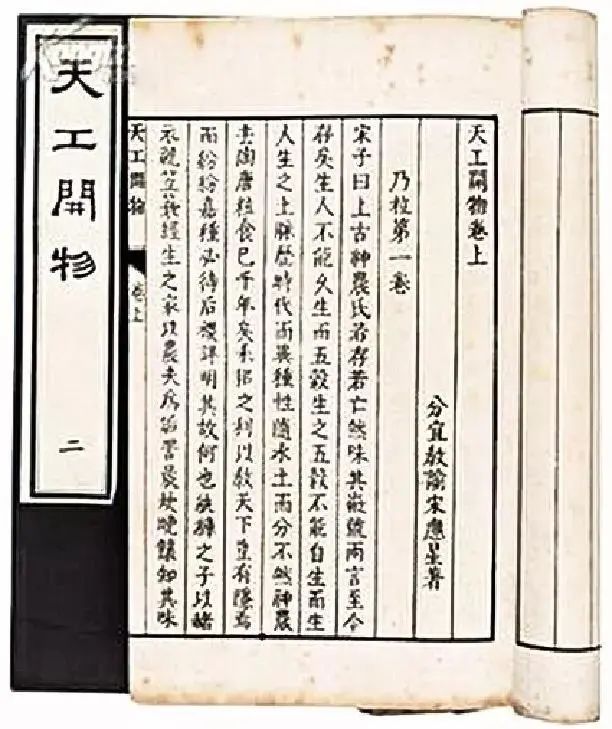 天工開物卷上
分宜教諭宋應星著
乃粒第一卷
宋子曰上古神農氏若存若亡然味其徽號兩言至今
存矣生人不能久生而五穀生之五穀不能自生而生
人生之土脉歷時代而異種性隨水土而分不然神農
去陶唐粒食已千年矣耒耜之利以教天下豈有隱焉
而紛紛嘉種必待后稷詳明其故何也紈褲之子以赭
衣視笠蓑經生之家以農夫為詬詈晨炊晚饟知其味
天工開物 卷上
天工開物 二